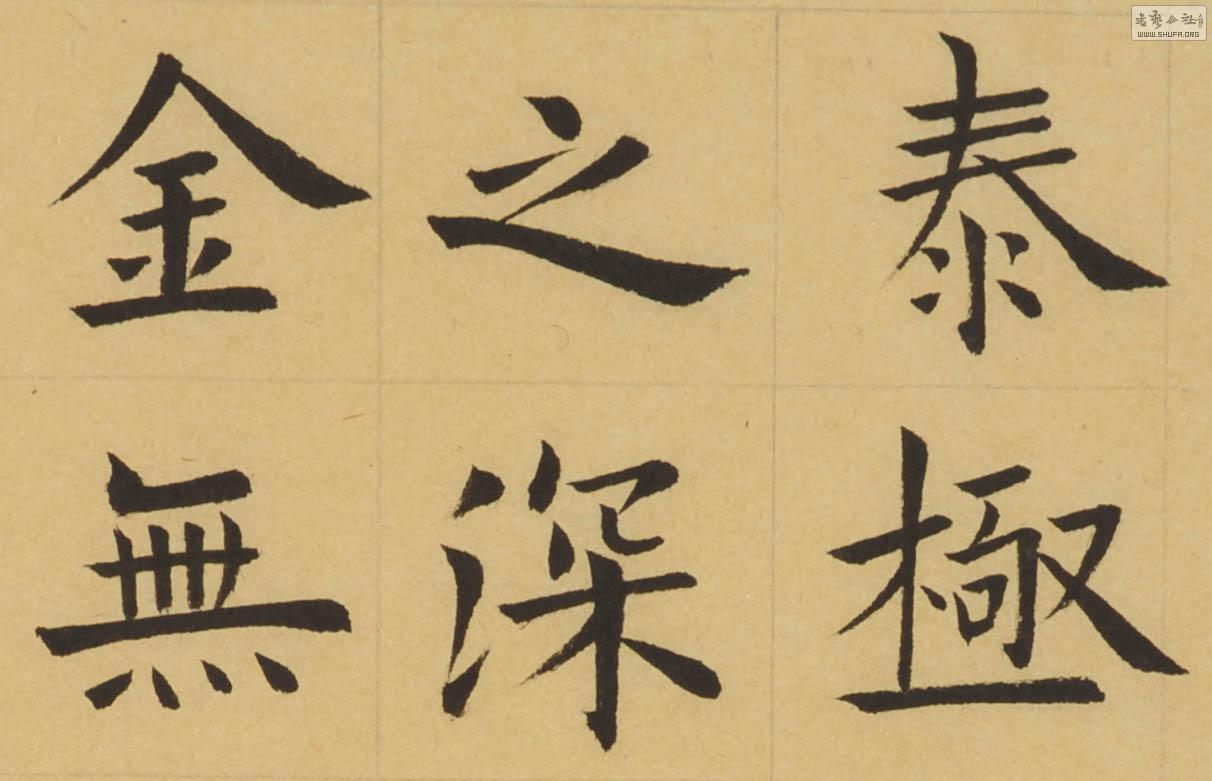 泰極
之深
金無
书艺公社
WWW.SHUFA.ORG